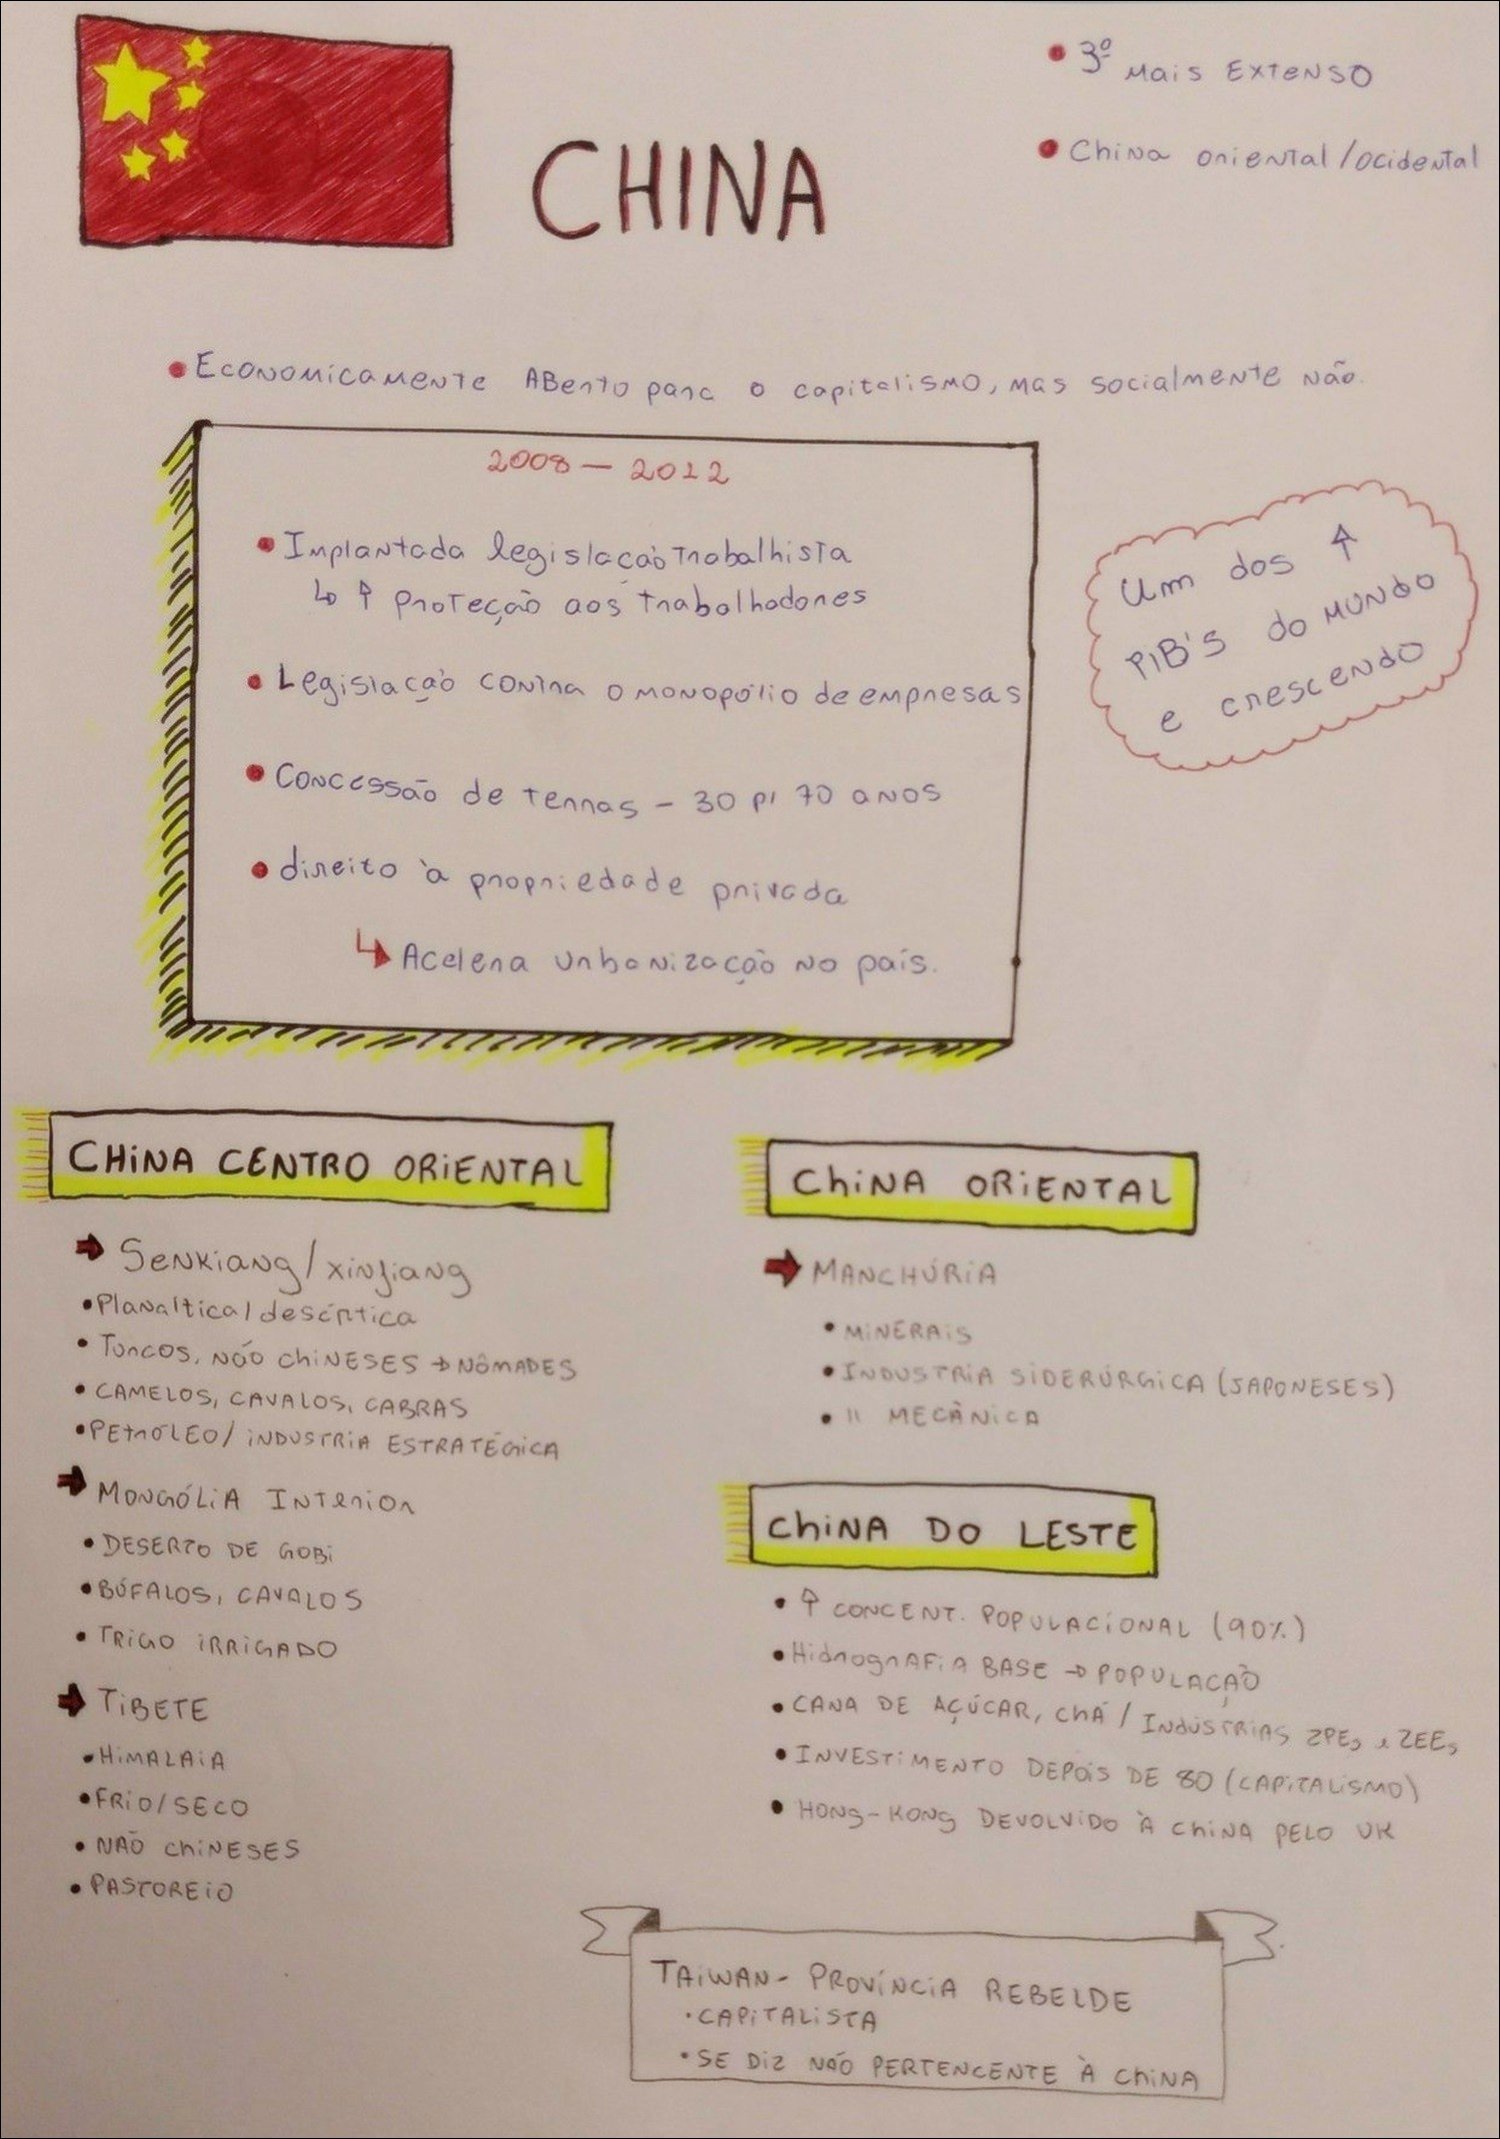 CHINA
• 3º Mais EXTENSO
• China oriental/ocidental
• Economicamente Aberto para o capitalismo, mas socialmente não.
2008 — 2012
• Implantada legislação trabalhista
↳ ↑ proteção aos trabalhadores
• Legislação contra o monopólio de empresas
• Concessão de terras - 30 p/ 70 anos
• direito à propriedade privada
↳ Acelera urbanização no país.
Um dos ↑
PIB's do MUNDO
e crescendo
CHINA CENTRO ORIENTAL
➡ Senkiang/xinjiang
• Planáltica/desértica
• Turcos, não chineses → nômades
• CAMELOS, CAVALOS, CABRAS
• PETRÓLEO/INDUSTRIA ESTRATÉGICA
➡ MONGÓLIA INTERIOR
• DESERTO DE GOBI
• BÚFALOS, CAVALOS
• TRIGO IRRIGADO
➡ TIBETE
• HIMALAIA
• FRIO/SECO
• NÃO CHINESES
• PASTOREIO
CHINA ORIENTAL
➡ MANCHÚRIA
• MINERAIS
• INDUSTRIA SIDERÚRGICA (JAPONESES)
• " MECÂNICA
CHINA DO LESTE
• ↑ CONCENT. POPULACIONAL (90%)
• HidrografiA BASE → POPULAÇÃO
• CANA DE AÇÚCAR, CHÁ / INDÚSTRIAS ZPEs e ZEEs
• INVESTIMENTO DEPOIS DE 80 (CAPITALISMO)
• HONG-KONG DEVOLVIDO À CHINA PELO UK
TAIWAN - PROVÍNCIA REBELDE
• CAPITALISTA
• SE DIZ NÃO PERTENCENTE À CHINA